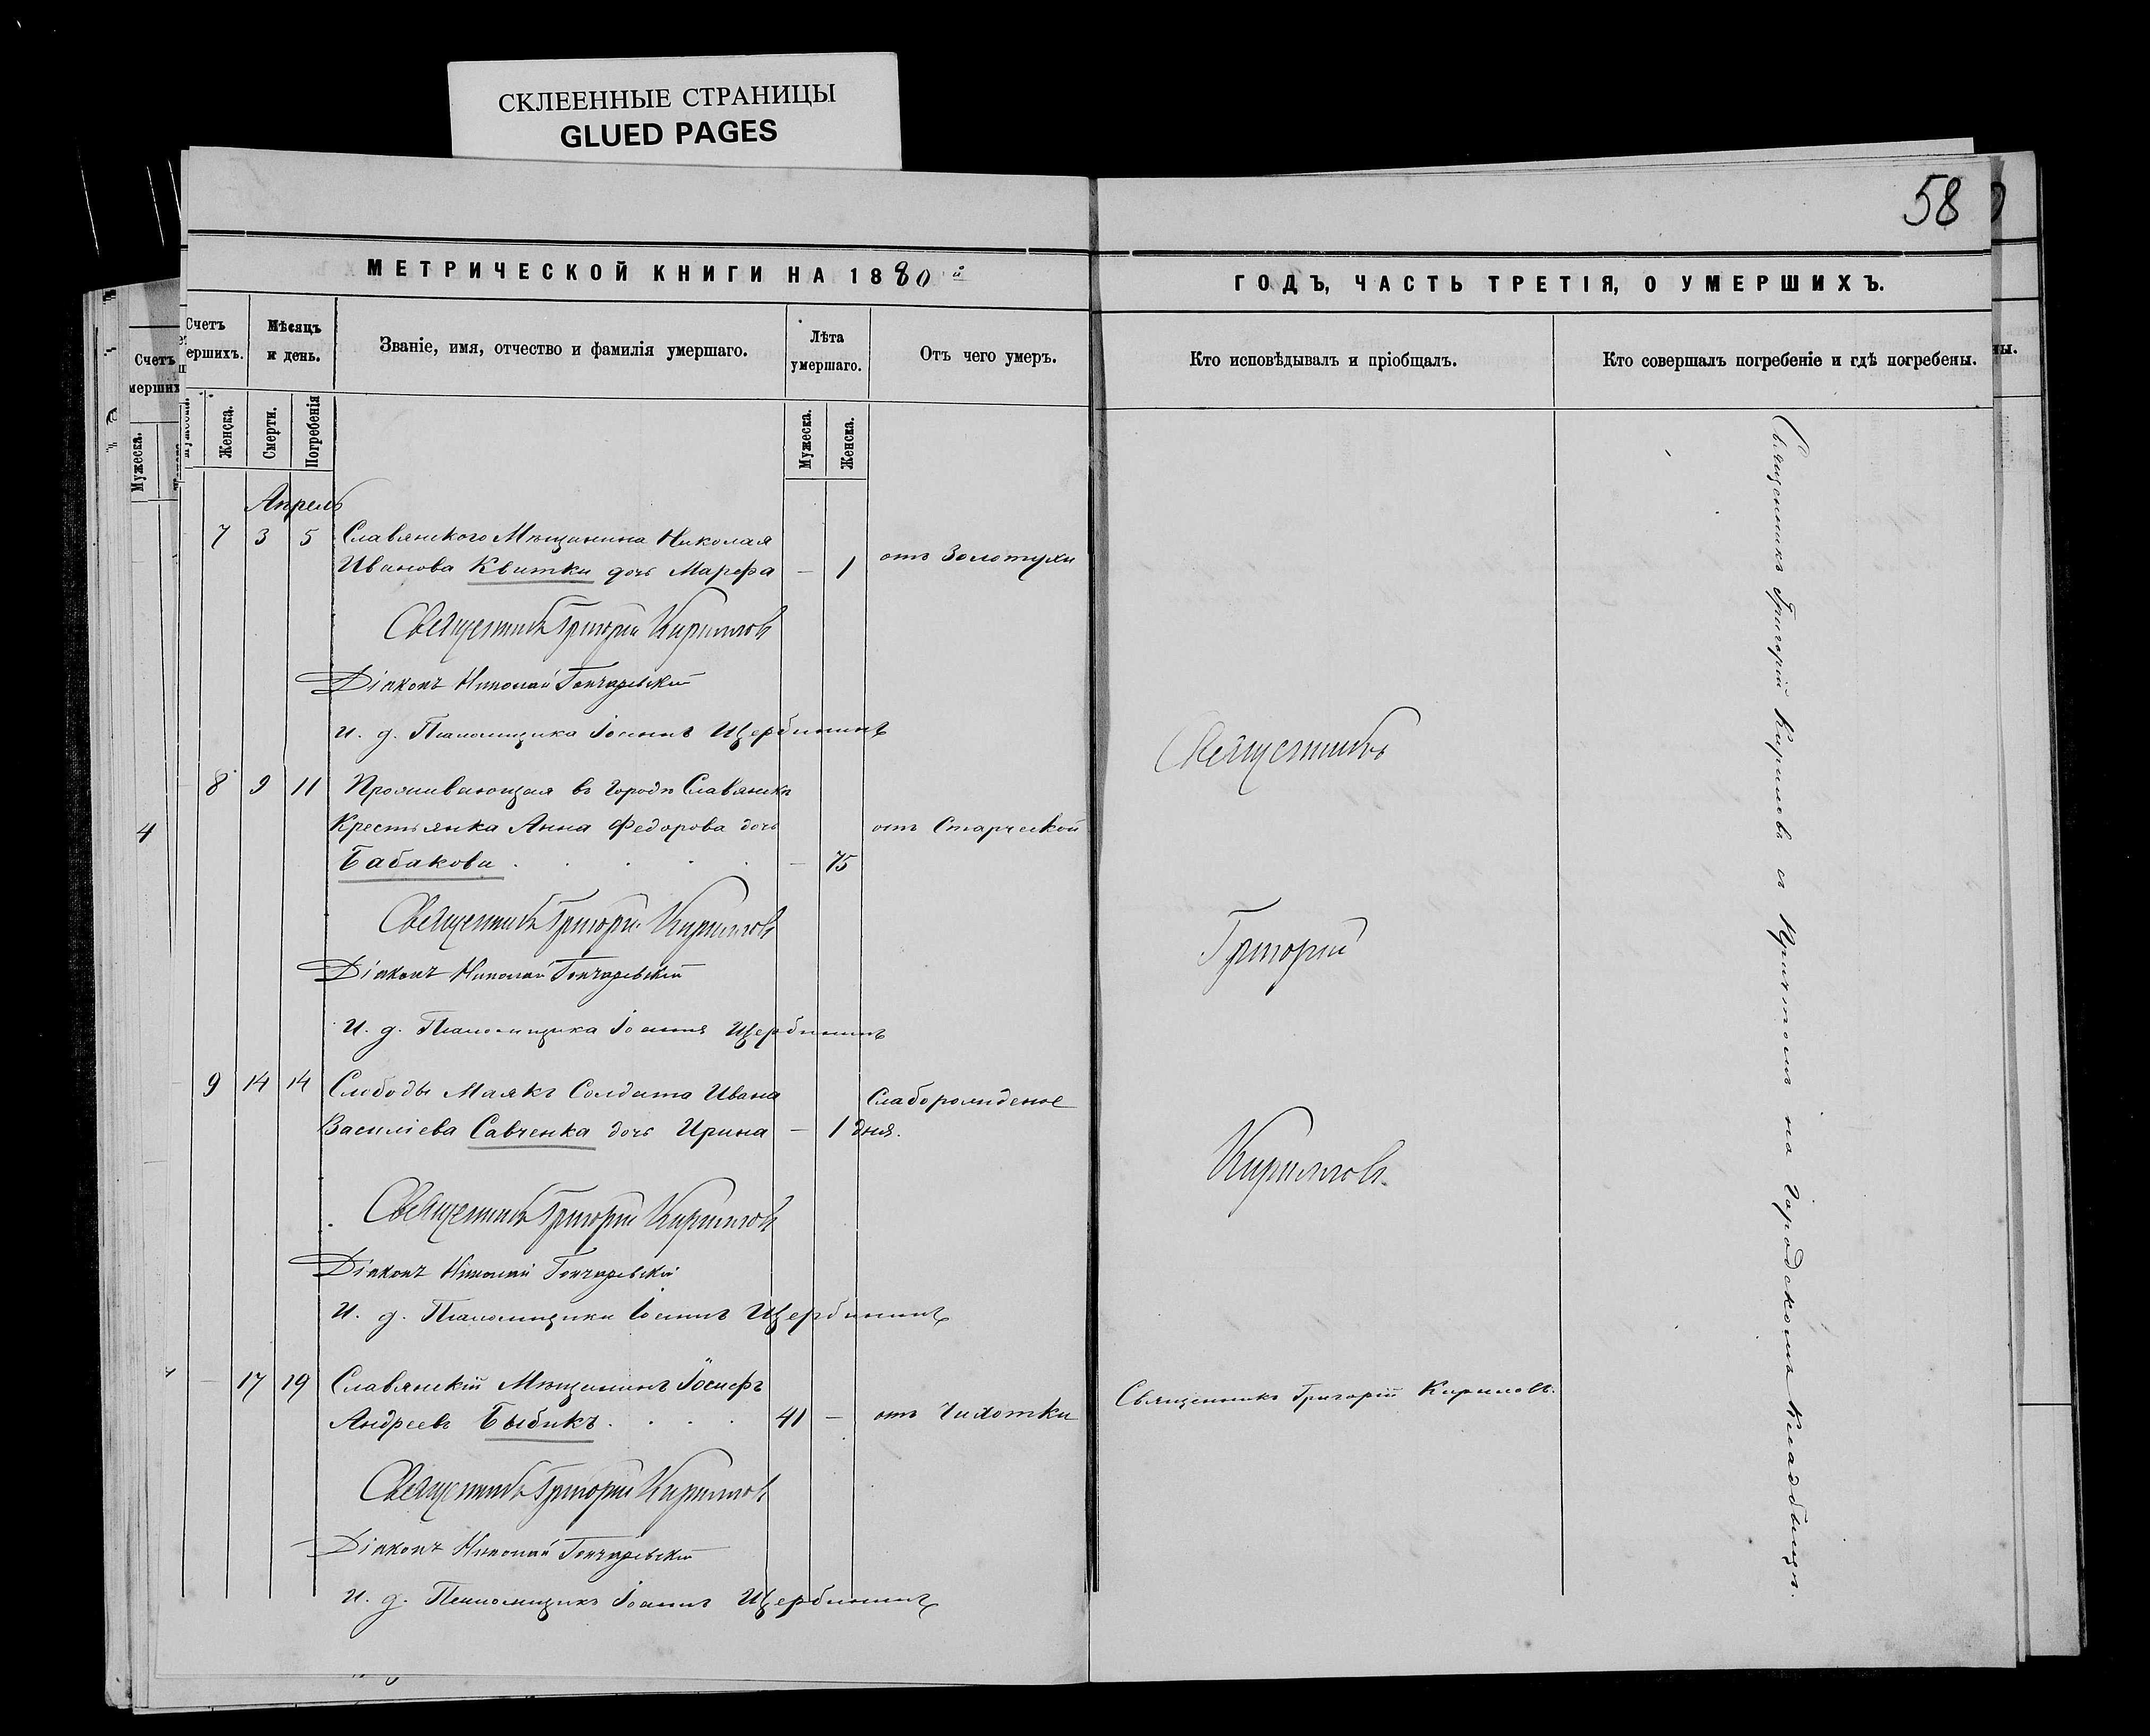 СКЛЕЕННЫЕ СТРАНИЦЫ
GLUED PAGES
58
МЕТРИЧЕСКОЙ КНИГИ НА 1880й
ГОДЪ, ЧАСТЬ ТРЕТІЯ, О УМЕРШИХЪ.
Счетъ
ершихъ.
Мѣсяцъ
и день.
Званіе, имя, отчество и фамилія умершаго.
Лѣта
умершаго.
Отъ чего умеръ.
Кто исповѣдывалъ и пріобщалъ.
Кто совершалъ погребеніе и гдѣ погребены.
ны.
Счетъ
мерших
Мужеска.
Женска.
Смерти.
Погребенія
Мужеска.
Женска.
Апрель
7 3 5 Славянского Мѣщанина Николая
Иванова Квитки дочь Марѳа — 1 отъ Золотухи
Священникъ Григорій Кириловъ
Діаконъ Николай Гончаревскій
И. д. Псаломщика Іоаннъ Щербининъ
8 9 11 Проживающая въ Городѣ Славянскѣ
Крестьянка Анна Федорова дочь отъ Старческой
Бабакова . . . . . — 75
4
Священникъ Григорій Кириловъ
Діаконъ Николай Гончаревскій
И. д. Псаломщика Іоаннъ Щербининъ
9 14 14 Слободы Маякъ Солдата Ивана Слаборожденое
Василіева Савченка дочь Ирина — 1 дня.
Священникъ Григорій Кириловъ
Діаконъ Николай Гончаревскій
И. д. Псаломщика Іоаннъ Щербининъ
— 17 19 Славянскій Мѣщанинъ Іосифъ
Андреевъ Быбикъ . . . . 41 — отъ Чихотки
Священникъ Григорій Кириловъ
Діаконъ Николай Гончаревскій
И. д. Псаломщикъ Іоаннъ Щербининъ
Священникъ
Григорій
Кириловъ.
Священникъ Григорій Кириловъ.
Священникъ Григорій Кириловъ съ Причтомъ на Городскомъ Кладбищѣ.